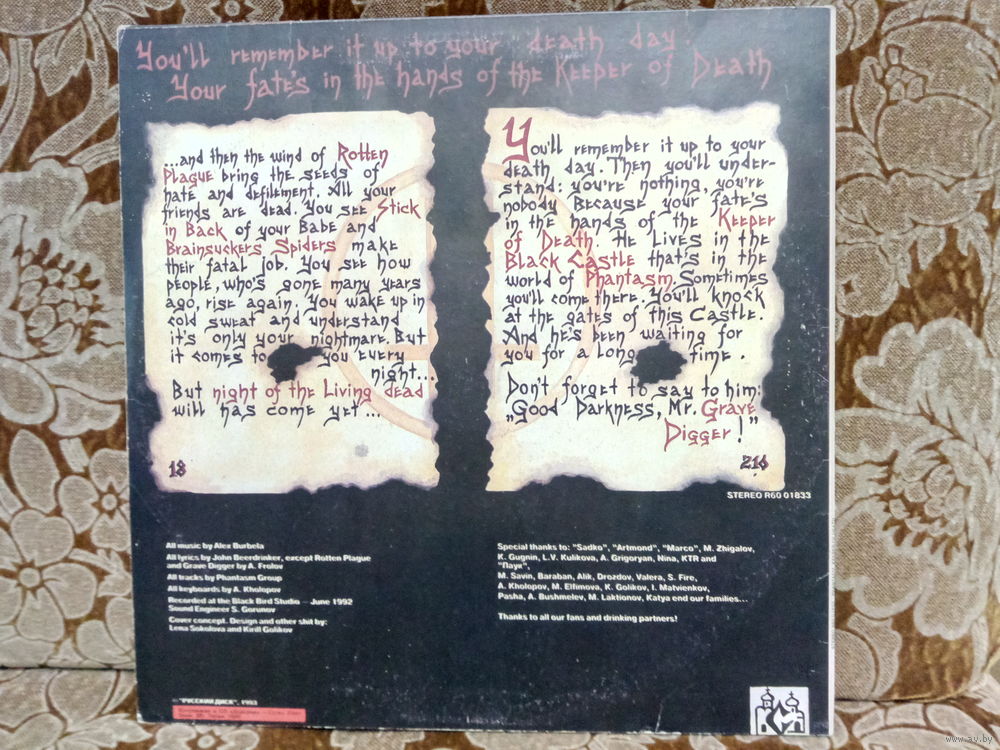 You'll remember it up to your death day
Your fate's in the hands of the Keeper of Death
...and then the wind of Rotten
Plague bring the seeds of
hate and defilement. All your
friends are dead. You see Stick
in Back of your Babe and
Brainsuckers Spiders make
their fatal job. You see how
people, who's gone many years
ago, rise again. You wake up in
cold sweat and understand
it's only your nightmare. But
it comes to you every
night...
But night of the Living dead
will has come yet...
18
You'll remember it up to your
death day. Then you'll under-
stand: you're nothing, you're
nobody Because your fate's
in the hands of the Keeper
of Death. He Lives in the
Black Castle that's in the
world of Phantasm. Sometimes
you'll come there. You'll knock
at the gates of this Castle.
And he's been waiting for
you for a long time.
Don't forget to say to him:
„Good Darkness, Mr. Grave
Digger!"
216
STEREO R60 01833
All music by Alex Burbela
All lyrics by John Beerdrinker, except Rotten Plague
and Grave Digger by A. Frolov
All tracks by Phantasm Group
All keyboards by A. Kholopov
Recorded at the Black Bird Studio — June 1992
Sound Engineer S. Gorunov
Cover concept. Design and other shit by:
Lena Sokolova and Kirill Golikov
Special thanks to: "Sadko", "Artmond", "Marco", M. Zhigalov,
K. Gugnin, L.V. Kulikova, A. Grigoryan, Nina, KTR and
"Паук",
M. Savin, Baraban, Alik, Drozdov, Valera, S. Fire,
A. Kholopov, M. Elfimova, K. Golikov, I. Matvienkov,
Pasha, A. Bushmelev, M. Laktionov, Katya end our families...
Thanks to all our fans and drinking partners!
"РУССКИЙ ДИСК", 1993
www.ay.by